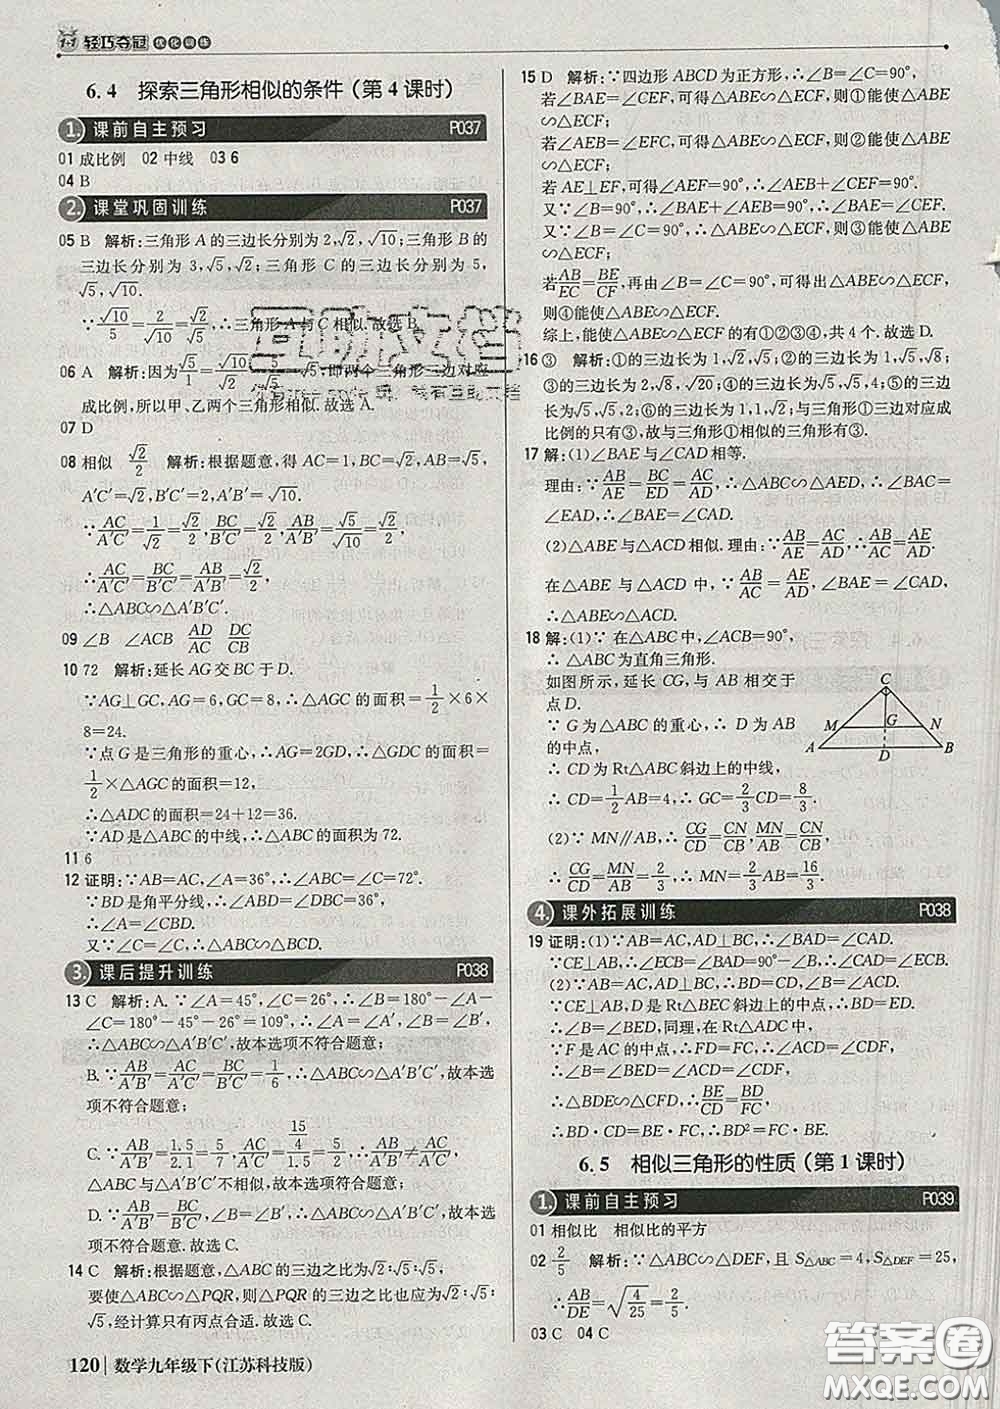 1+1 轻巧夺冠 优化训练
6.4 探索三角形相似的条件(第4课时)
1. 课前自主预习 P037
01 成比例 02 中线 03 6
04 B
2. 课堂巩固训练 P037
05 B 解析:三角形 A 的三边长分别为 2,√2,√10;三角形 B 的
三边长分别为 3,√5,√2;三角形 C 的三边长分别为 5,
√5,√10.
∵√10/5=2/√10=√2/√5,∴三角形 A 与 C 相似.故选 B.
成比例,所以甲、乙两个三角形相似.故选 A.
07 D
08 相似 √2/2 解析:根据题意,得 AC=1,BC=√2,AB=√5,
A′C′=√2,B′C′=2,A′B′=√10.
∵AC/A′C′=1/√2=√2/2,BC/B′C′=√2/2,AB/A′B′=√5/√10=√2/2,
∴AC/A′C′=BC/B′C′=AB/A′B′=√2/2,
∴△ABC∽△A′B′C′.
09 ∠B ∠ACB AD/AC DC/CB
10 72 解析:延长 AG 交 BC 于 D.
∵AG⊥GC,AG=6,GC=8,∴△AGC 的面积=1/2×6×
8=24.
∵点 G 是三角形的重心,∴AG=2GD,∴△GDC 的面积=
1/2×△AGC 的面积=12,
∴△ADC 的面积=24+12=36.
∵AD 是△ABC 的中线,∴△ABC 的面积为 72.
11 6
12 证明:∵AB=AC,∠A=36°,∴∠ABC=∠C=72°.
∵BD 是角平分线,∴∠ABD=∠DBC=36°,
∴∠A=∠CBD.
又∵∠C=∠C,∴△ABC∽△BCD.
3. 课后提升训练 P038
13 C 解析:A.∵∠A=45°,∠C=26°,∴∠B=180°-∠A-
∠C=180°-45°-26°=109°,∴∠A=∠A′,∠B=∠B′,
∴△ABC∽△A′B′C′,故本选项不符合题意;
B.∵AB/A′B′=AC/A′C′=BC/B′C′=1/6,∴△ABC∽△A′B′C′,故本选
项不符合题意;
C.∵AB/A′B′=1.5/2.1=5/7,AC/A′C′=(15/4)/1.5=5/2,∴AB/A′B′≠AC/A′C′,
∴△ABC 与△A′B′C′不相似,故本选项符合题意;
D.∵AB/A′B′=BC/B′C′=AC/A′C′,∴△ABC∽△A′B′C′,故本选
项不符合题意.故选 C.
14 C 解析:根据题意,△ABC 的三边之比为√2∶√5∶√5,
要使△ABC∽△PQR,则△PQR 的三边之比也应为√2∶√5∶
√5,经计算只有丙点合适.故选 C.
15 D 解析:∵四边形 ABCD 为正方形,∴∠B=∠C=90°.
若∠BAE=∠CEF,可得∠B=∠C,则①能使△ABE
∽△ECF;
若∠AEB=∠EFC,可得∠B=∠C,则②能使△ABE
∽△ECF;
若 AE⊥EF,可得∠AEF=90°,∴∠AEB+∠CEF=90°.
又∵∠B=90°,∴∠BAE+∠AEB=90°,∴∠BAE=∠CEF.
又∵∠B=∠C=90°,则③能使△ABE∽△ECF;
若AB/EC=BE/CF,再由∠B=∠C=90°,可得△ABE∽△ECF,
则④能使△ABE∽△ECF.
综上,能使△ABE∽△ECF 的有①②③④,共 4 个.故选 D.
16 ③ 解析:①的三边长为 1,√2,√5;②的三边长为 1,√5,√8;
③的三边长为 2,√8,√20;④的三边长为√5,√5,4;⑤的三边
长为√5,√5,2;⑥的三边长为 1,1,√2;与三角形①三边对应成
比例的只有③,故与三角形①相似的三角形有③.
17 解:(1)∠BAE 与∠CAD 相等.
理由:∵AB/AE=BC/ED=AC/AD,∴△ABC∽△AED,∴∠BAC=
∠EAD,∴∠BAE=∠CAD.
(2)△ABE 与△ACD 相似.理由:∵AB/AE=AC/AD,∴AB/AC=AE/AD.
在△ABE 与△ACD 中,∵AB/AC=AE/AD,∠BAE=∠CAD,
∴△ABE∽△ACD.
18 解:(1)∵ 在△ABC 中,∠ACB=90°,
∴ △ABC 为直角三角形.
如图所示,延长 CG,与 AB 相交于
点 D.
∵ G 为△ABC 的重心,∴ D 为 AB
的中点,
∴ CD 为 Rt△ABC 斜边上的中线,
∴ CD=1/2AB=4,∴ GC=2/3CD=8/3.
(2)∵ MN∥AB,∴ CG/CD=CN/CB,MN/AB=CN/CB,
∴ CG/CD=MN/AB=2/3,∴ MN=2/3AB=16/3.
C
M G N
A D B
4. 课外拓展训练 P038
19 证明:(1)∵AB=AC,AD⊥BC,∴∠BAD=∠CAD.
∵CE⊥AB,∴∠ABC=∠AEC=90°,∴△ABD∽△CBE.
(2)∵AB=AC,AD⊥BC,∴BD=CD.
∵CE⊥AB,D 是 Rt△BEC 斜边上的中点,∴BD=ED.
∴∠B=∠BED,同理,在 Rt△ADC 中,
∵F 是 AC 的中点,∴∠ACD=∠CDF,
∴∠B=∠BED=∠ACD=∠CDF,
∴△BDE∽△CFD,∴BE/CD=BD/FC,
∴BD·CD=BE·FC,∴BD²=FC·BE.
6.5 相似三角形的性质(第1课时)
1. 课前自主预习 P039
01 相似比 相似比的平方
02 2/5 解析:∵△ABC∽△DEF,且 S△ABC=4,S△DEF=25,
∴AB/DE=√(4/25)=2/5.
03 C 04 C
120 数学九年级下(江苏科技版)
答案圈
MXQE.COM